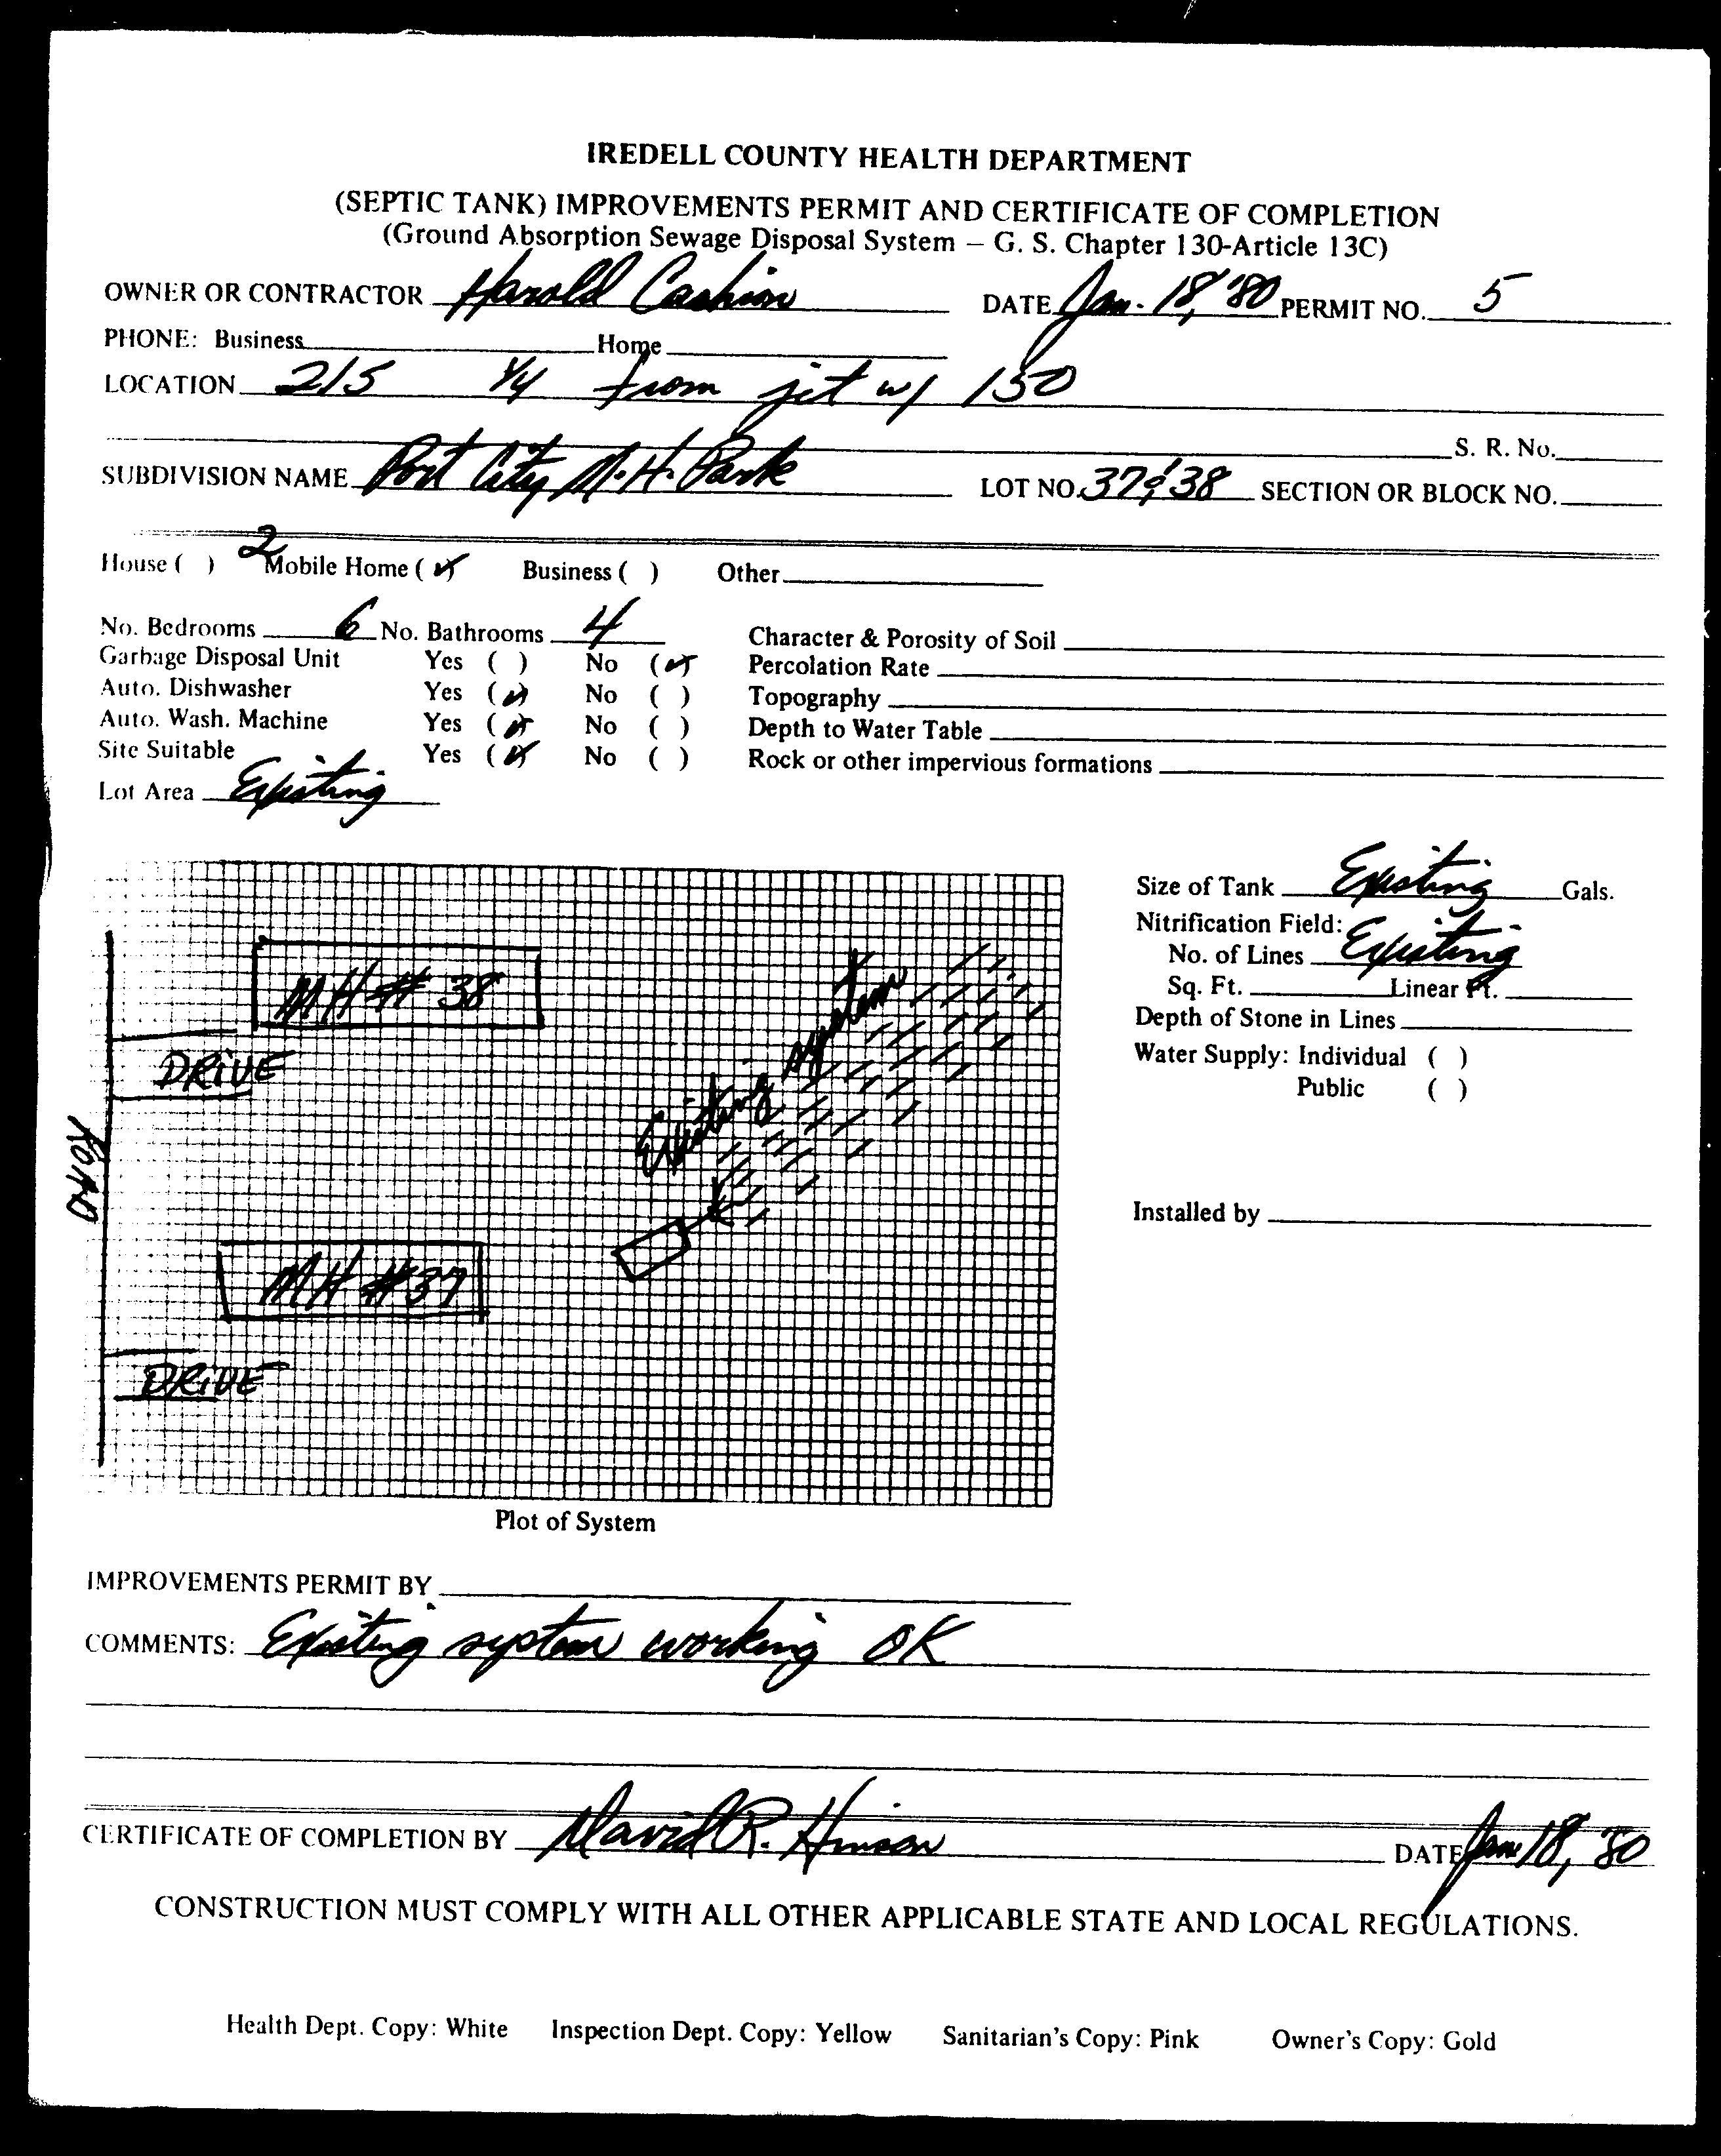 IREDELL COUNTY HEALTH DEPARTMENT
(SEPTIC TANK) IMPROVEMENTS PERMIT AND CERTIFICATE OF COMPLETION
(Ground Absorption Sewage Disposal System – G. S. Chapter 130-Article 13C)
OWNER OR CONTRACTOR Harold Cashion DATE Jan. 18, '80 PERMIT NO. 5
PHONE: Business Home
LOCATION 215 1/4 from jct w/ 150
S. R. No.
SUBDIVISION NAME Port City M.H. Park LOT NO. 37 & 38 SECTION OR BLOCK NO.
House ( ) 2 Mobile Home (✓) Business ( ) Other
No. Bedrooms 6 No. Bathrooms 4 Character & Porosity of Soil
Garbage Disposal Unit Yes ( ) No (✓) Percolation Rate
Auto. Dishwasher Yes (✓) No ( ) Topography
Auto. Wash. Machine Yes (✓) No ( ) Depth to Water Table
Site Suitable Yes (✓) No ( ) Rock or other impervious formations
Lot Area Existing
Size of Tank Existing Gals.
Nitrification Field:
No. of Lines Existing
Sq. Ft. Linear Ft.
Depth of Stone in Lines
Water Supply: Individual ( )
Public ( )
Installed by
MH # 38
DRIVE
Existing system
ROAD
MH #37
DRIVE
Plot of System
IMPROVEMENTS PERMIT BY
COMMENTS: Existing system working OK
CERTIFICATE OF COMPLETION BY David R. Hinson DATE Jan 18, 80
CONSTRUCTION MUST COMPLY WITH ALL OTHER APPLICABLE STATE AND LOCAL REGULATIONS.
Health Dept. Copy: White Inspection Dept. Copy: Yellow Sanitarian's Copy: Pink Owner's Copy: Gold